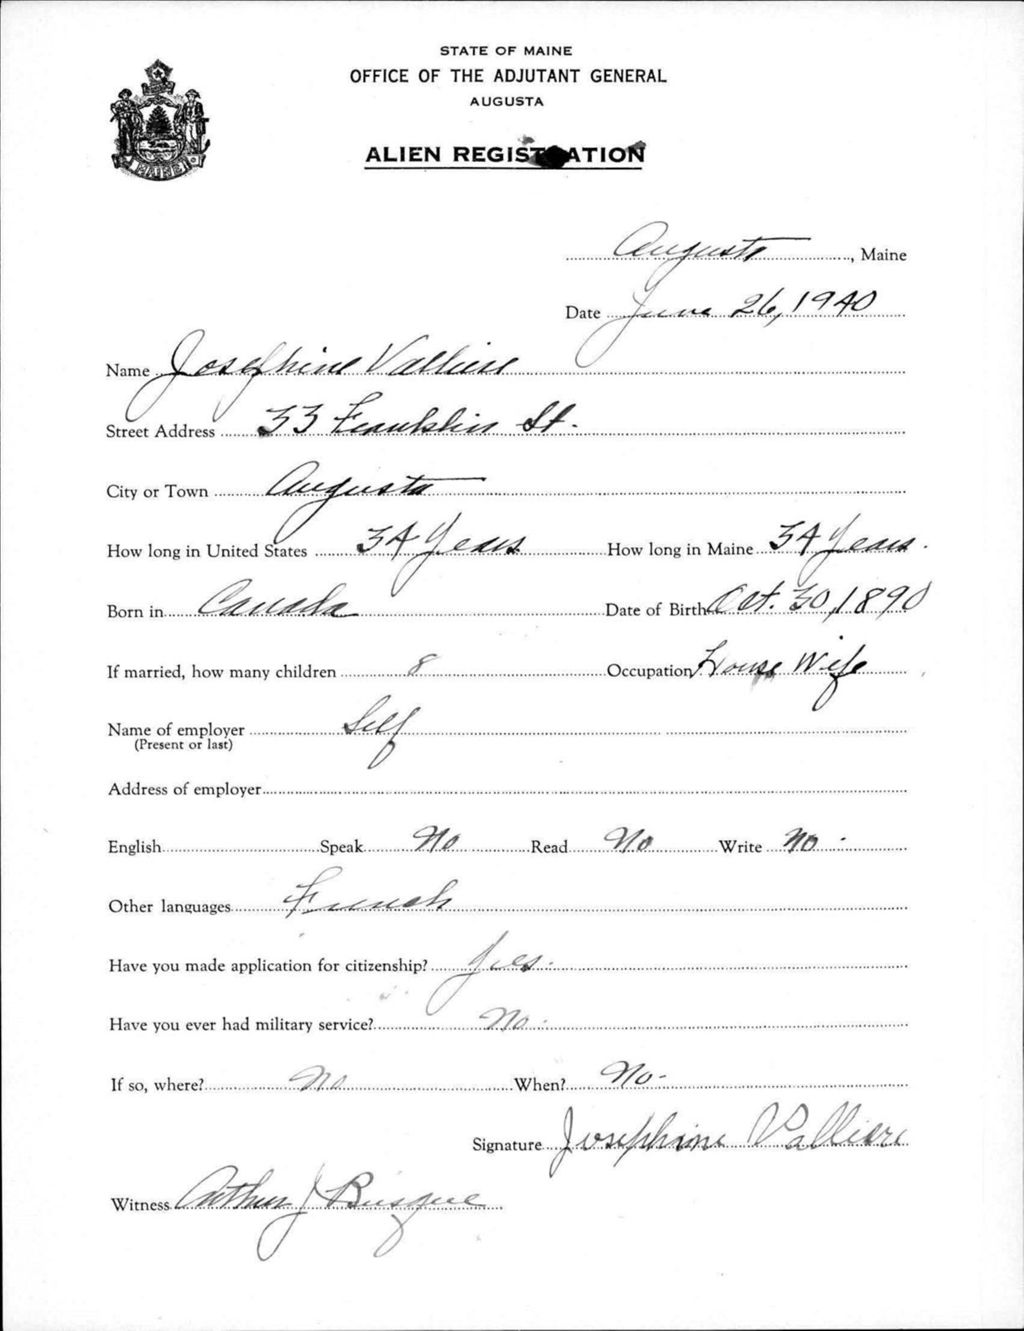 STATE OF MAINE
OFFICE OF THE ADJUTANT GENERAL
AUGUSTA
ALIEN REGISTRATION
MAINE
Augusta, Maine
Date June 26, 1940
Name Josephine Valliere
Street Address 33 Franklin St.
City or Town Augusta
How long in United States 34 Years How long in Maine 34 Years.
Born in Canada Date of Birth Oct. 30, 1890
If married, how many children 8 Occupation House Wife
Name of employer Self
(Present or last)
Address of employer
English Speak No Read No Write No.
Other languages French
Have you made application for citizenship? Yes.
Have you ever had military service? No.
If so, where? No When? No-
Signature Josephine Valliere
Witness Arthur J Bisque